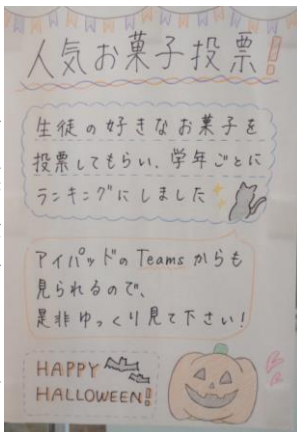 人気お菓子投票!
生徒の好きなお菓子を
投票してもらい、学年ごとに
ランキングにしました
アイパッドのTeamsからも
見られるので、
是非ゆっくり見て下さい!
HAPPY
HALLOWEEN!